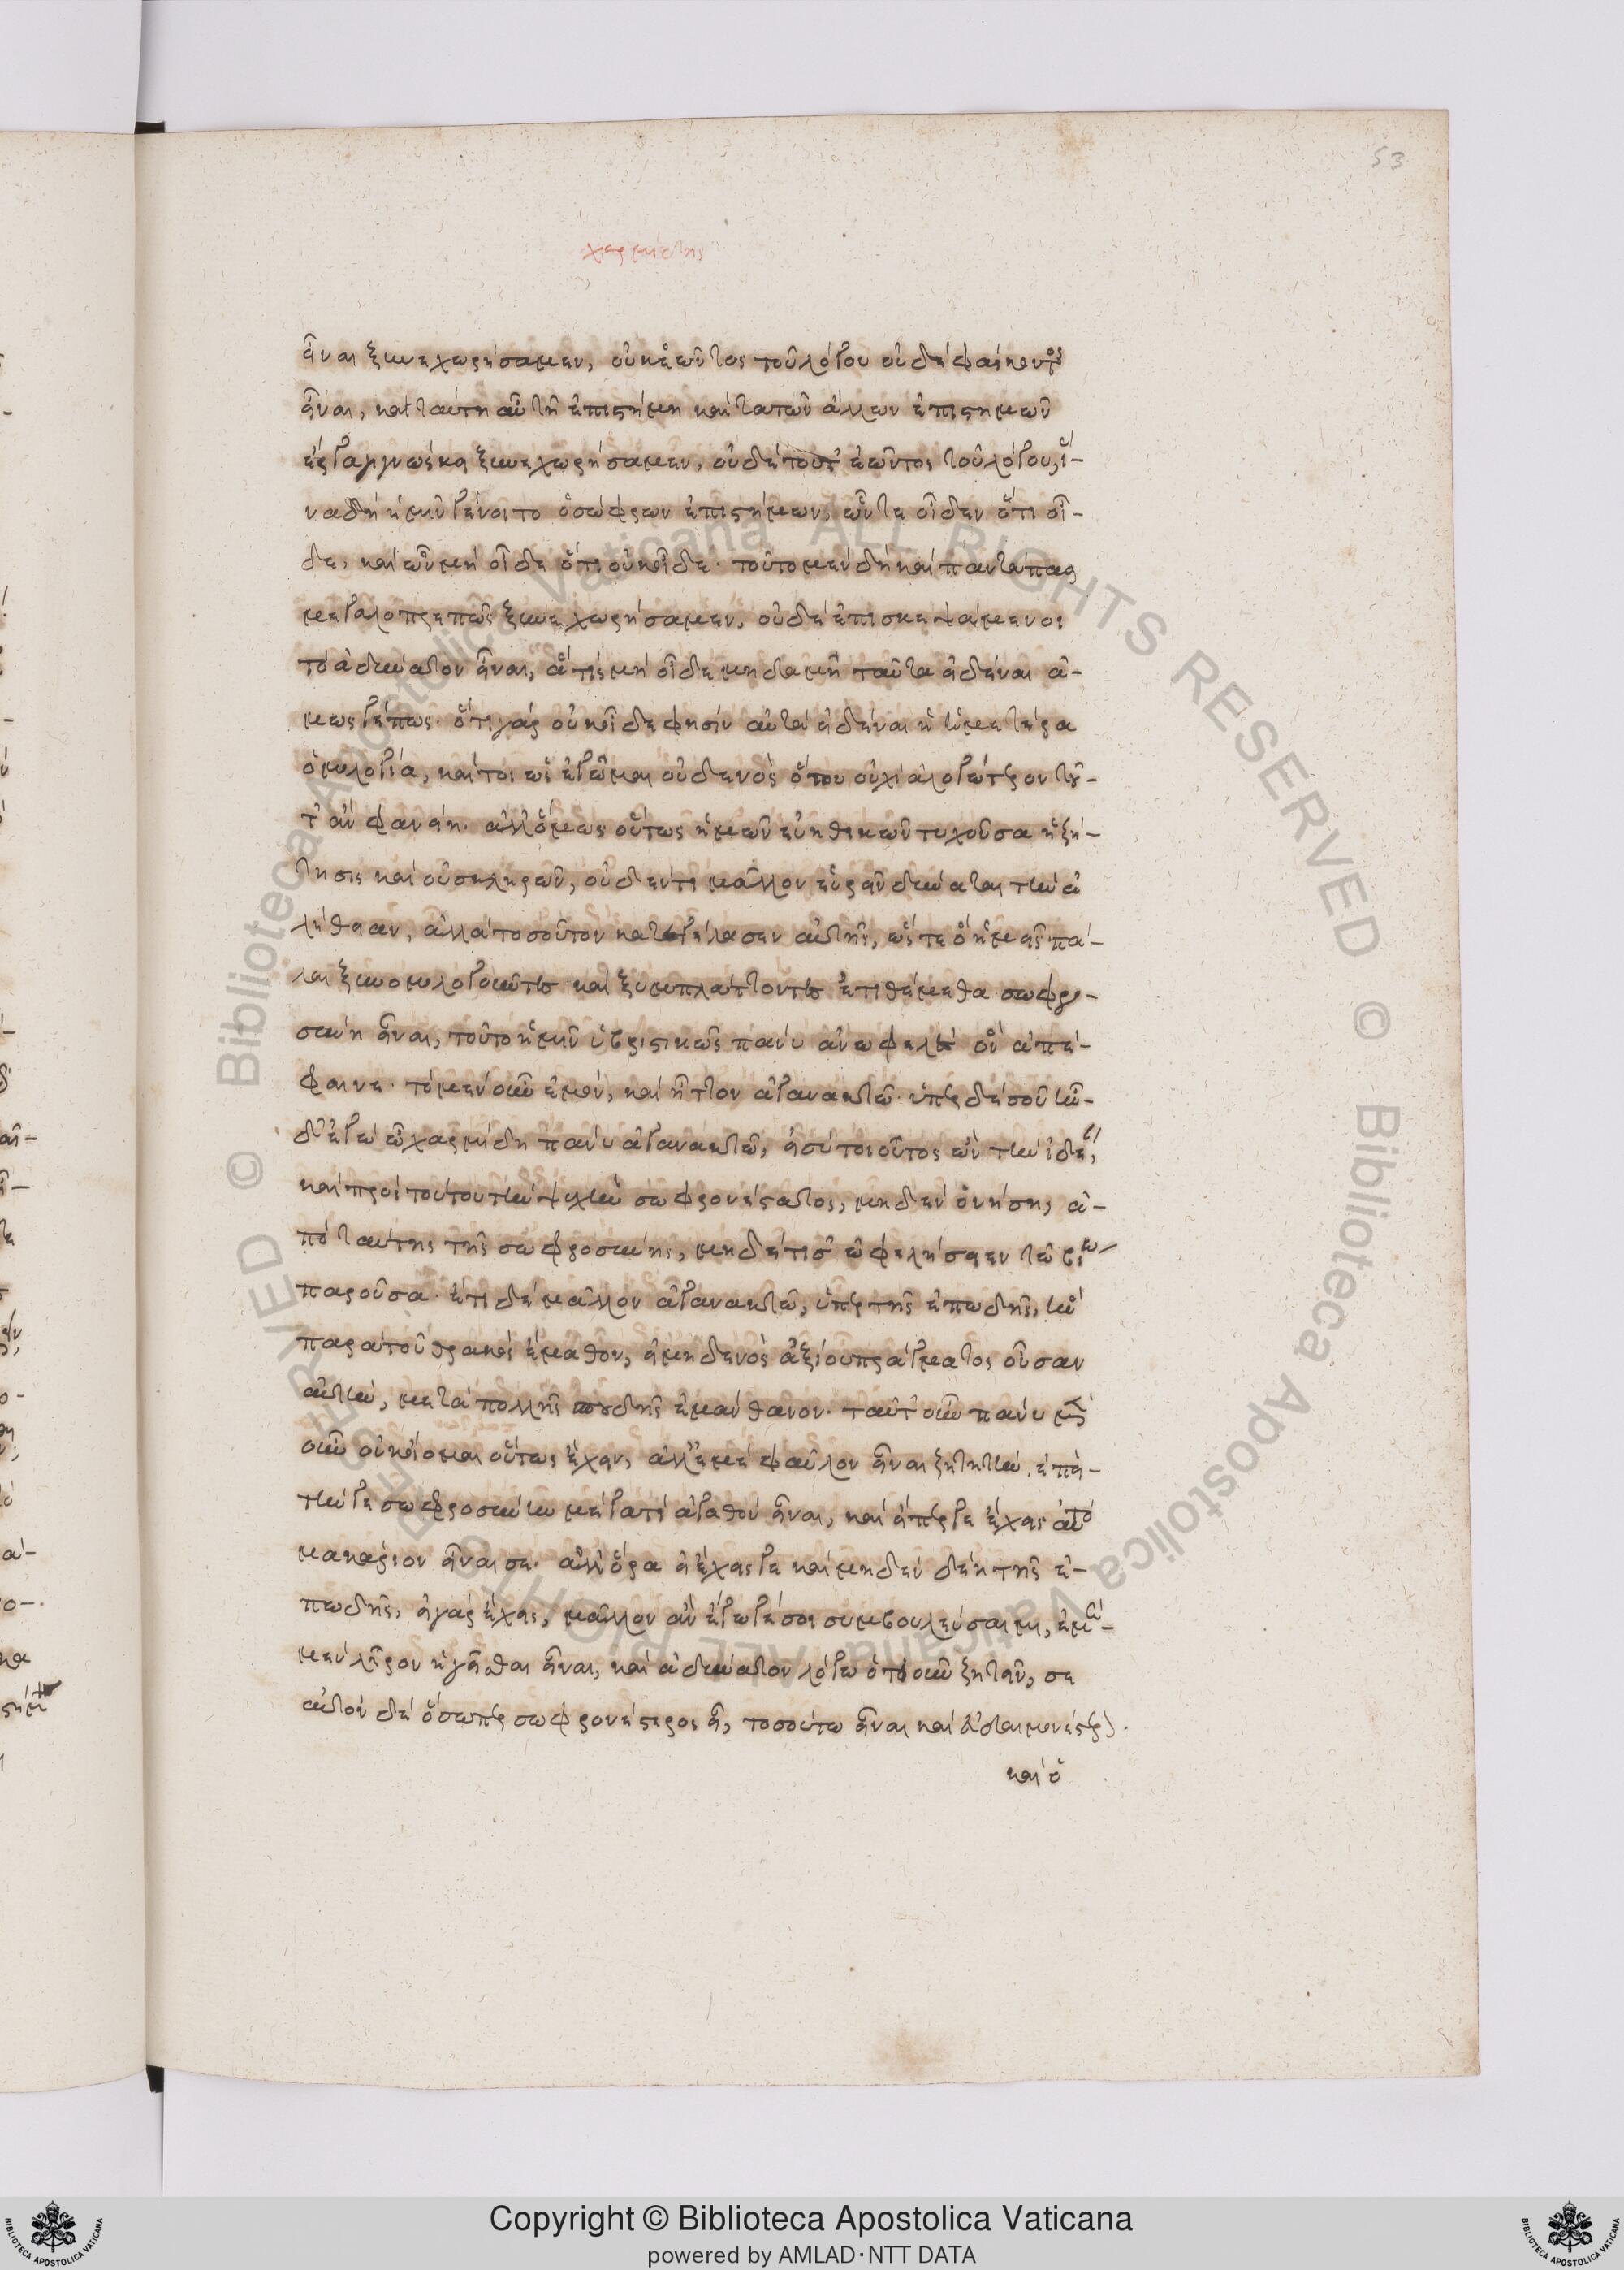 53
χαρμίδης
εἶναι ξυνεχωρήσαμεν, οὐκ ἐῶντος τοῦ λόγου οὐδὲ φάσκοντος
εἶναι, καὶ ταύτῃ αὖ τῇ ἐπιστήμῃ καὶ τὰ τῶν ἄλλων ἐπιστημῶν
ἔργα γιγνώσκειν ξυνεχωρήσαμεν, οὐδὲ τοῦτ' ἐῶντος τοῦ λόγου, ἵ-
να δὴ ἡμῖν γένοιτο ὁ σώφρων ἐπιστήμων, ὧν τε οἶδεν ὅτι οἶ-
δε, καὶ ὧν μὴ οἶδε ὅτι οὐκ οἶδε. τοῦτο μὲν δὴ καὶ παντάπασι
μεγαλοπρεπῶς ξυνεχωρήσαμεν, οὐδὲ ἐπισκεψάμενοι
τὸ ἀδύνατον εἶναι, ἅ τις μὴ οἶδε μηδαμῇ ταῦτα εἰδέναι ἁ-
μῶς γέ πως. ὅτι γὰρ οὐκ οἶδε φησὶν αὐτὰ εἰδέναι ἡ ἡμετέρα
ὁμολογία, καίτοι ὡς ἐγᾦμαι οὐδενὸς ὅτου οὐχὶ ἀλογώτερον τοῦ-
τ' ἂν φανείη. ἀλλ' ὅμως οὕτως ἡμῶν εὐηθικῶν τυχοῦσα ἡ ζή-
τησις καὶ οὐ σκληρῶν, οὐδέν τι μᾶλλον εὑρεῖν δύναται τὴν ἀ
λήθειαν, ἀλλὰ τοσοῦτον κατεγέλασεν αὐτῆς, ὥστε ὃ ἡμεῖς πά-
λαι ξυνομολογοῦντες καὶ ξυμπλάττοντες ἐτιθέμεθα σωφρο-
σύνη εἶναι, τοῦτο ἡμῖν ὑβριστικῶς πάνυ ἀνωφελὲς ὂν ἀπέ-
φαινε. τὸ μὲν οὖν ἐμὸν, καὶ ἧττον ἀγανακτῶ. ὑπὲρ δὲ σοῦ ἦν-
δ' ἐγὼ ὦ χαρμίδη πάνυ ἀγανακτῶ, εἰ σὺ τοιοῦτος ὢν τὴν ἰδέ,
καὶ πρὸς τούτου τὴν ψυχὴν σωφρονέστατος, μηδὲν ὀνήσῃ, ἀ-
πὸ ταύτης τῆς σωφροσύνης, μηδέ τι σ' ὠφελήσειεν τῶ βίω
παροῦσα. ἔτι δὲ μᾶλλον ἀγανακτῶ, ὑπὲρ τῆς ἐπωδῆς, ἣν
παρὰ τοῦ θρακὸς ἔμαθον, εἰ μηδενὸς ἀξίου πράγματος οὖσαν
αὐτὴν, μετὰ πολλῆς σπουδῆς ἐμάνθανον. ταῦτ' οὖν πάνυ μὲν
οὖν οὐκ οἴομαι οὕτως ἔχειν, ἀλλ' ἐμὲ φαῦλον εἶναι ζητητήν. ἐπεὶ
τήν γε σωφροσύνην μέγα τι ἀγαθὸν εἶναι, καὶ εἴπερ γε ἔχεις αὐτὸ
μακάριον εἶναι σε. ἀλλ' ὅρα εἰ ἔχεις γε καὶ μηδὲν δέη τῆς ἐ-
πωδῆς, εἰ γὰρ ἔχεις, μᾶλλον ἂν ἔγωγέ σοι συμβουλεύσαιμι, ἐμὲ
μὲν λῆρον ἡγεῖσθαι εἶναι, καὶ ἀδύνατον λόγω ὁτιοῦν ζητεῖν, σε
αυτὸν δὲ ὅσωπερ σωφρονέστερος εἶ, τοσούτω εἶναι καὶ εὐδαιμονέστερον.
καὶ ὁ